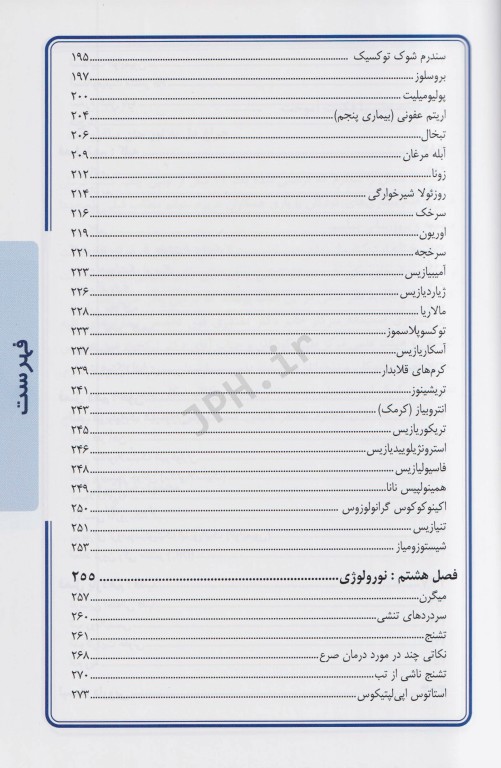 سندرم شوک توکسیک ........ ۱۹۵
بروسلوز ........ ۱۹۷
پولیومیلیت ........ ۲۰۰
اریتم عفونی (بیماری پنجم) ........ ۲۰۴
تبخال ........ ۲۰۶
آبله مرغان ........ ۲۰۹
زونا ........ ۲۱۲
روزئولا شیرخوارگی ........ ۲۱۴
سرخک ........ ۲۱۶
اوریون ........ ۲۱۹
سرخجه ........ ۲۲۱
آمیبیازیس ........ ۲۲۳
ژیاردیازیس ........ ۲۲۶
مالاریا ........ ۲۲۸
توکسوپلاسموز ........ ۲۳۳
آسکاریازیس ........ ۲۳۷
کرم‌های قلابدار ........ ۲۳۹
تریشینوز ........ ۲۴۱
انتروبیاز (کرمک) ........ ۲۴۳
تریکوریازیس ........ ۲۴۵
استرونژیلوییدیازیس ........ ۲۴۶
فاسیولیازیس ........ ۲۴۸
همینولپیس نانا ........ ۲۴۹
اکینوکوکوس گرانولوزوس ........ ۲۵۰
تنیازیس ........ ۲۵۱
شیستوزومیاز ........ ۲۵۳
فصل هشتم : نورولوژی ........ ۲۵۵
میگرن ........ ۲۵۷
سردردهای تنشی ........ ۲۶۰
تشنج ........ ۲۶۱
نکاتی چند در مورد درمان صرع ........ ۲۶۸
تشنج ناشی از تب ........ ۲۷۰
استاتوس اپی‌لپتیکوس ........ ۲۷۳
فهرست
JPH.ir